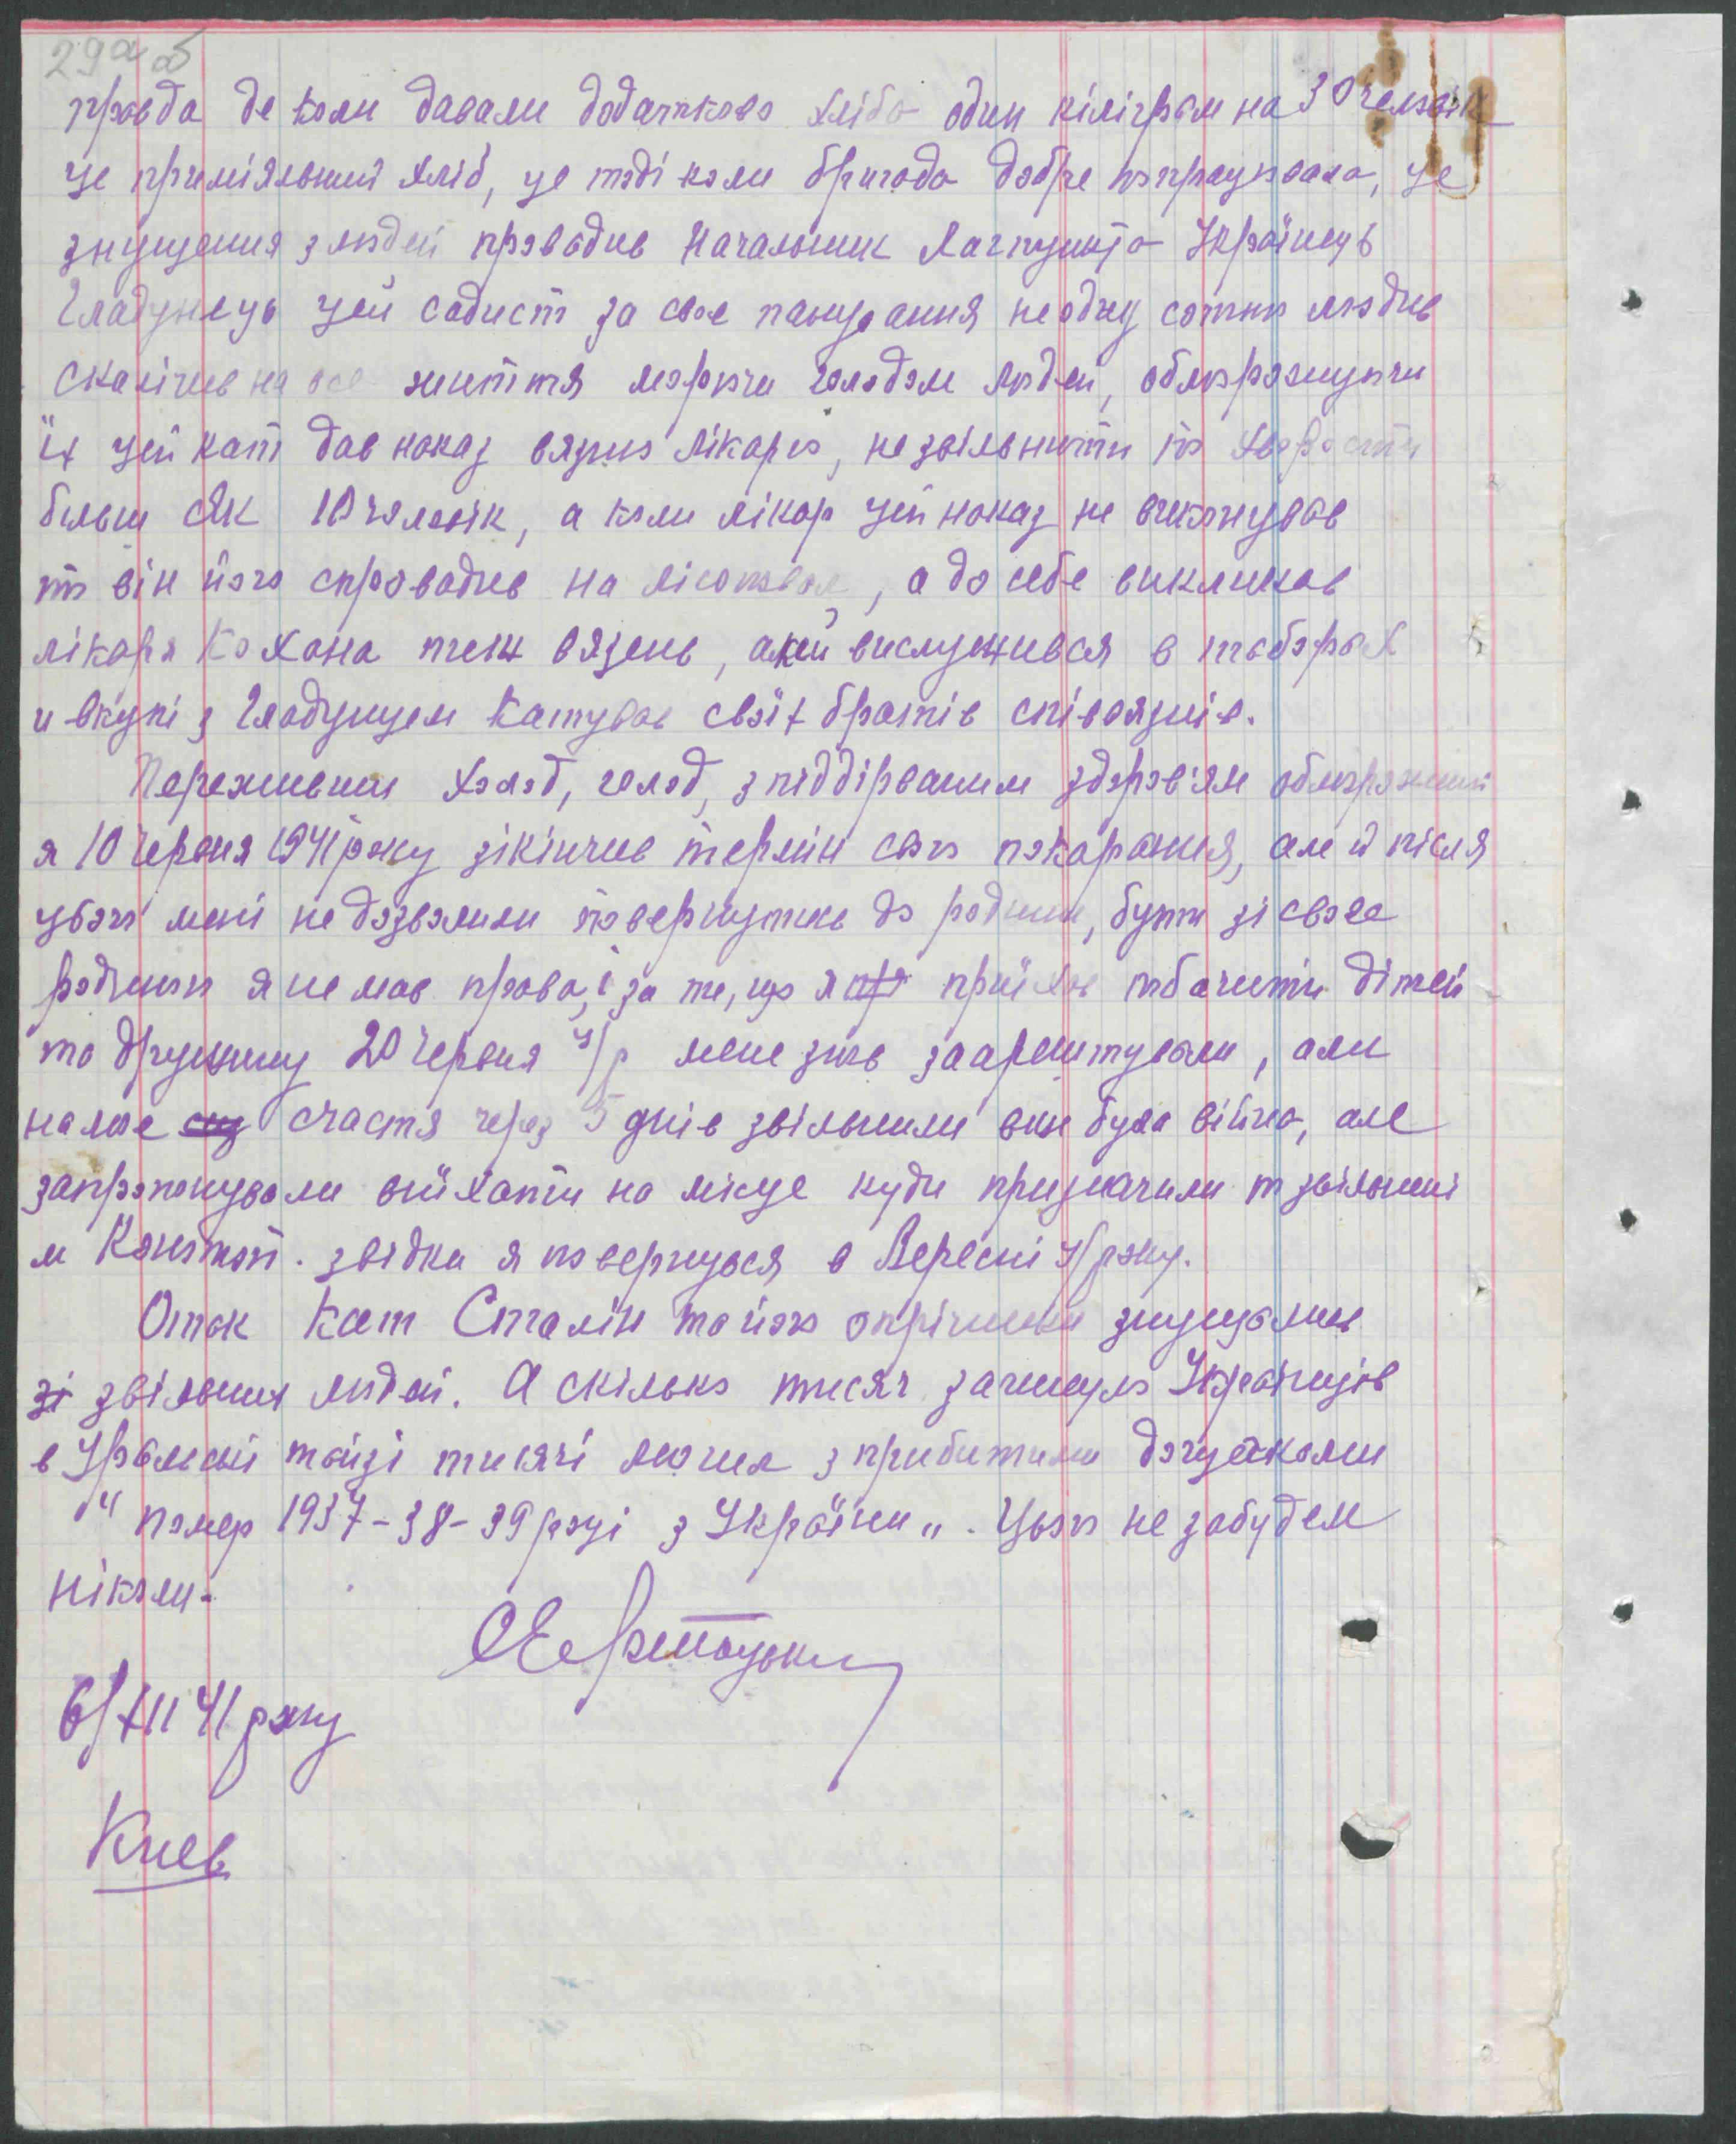 29а б
правда де коли давали додатково хліба один кіліграм на 30 челов́ік
це приміяльний хліб, це тоді коли бригада добре попрацювала, це
знущення з людей проводив Начальник Лагпункта Українець
Гладунець цей садист за своє панування не одну сотню людив
скалічив на все життя морючи голодом людей, обморожуючи
їх цей кат дав наказ вязню лікарю, не звільнити по хворости
більш як 10 чоловік, а коли лікар цей наказ не виконував
то він його спровадив на лісоповал, а до себе викликав
лікаря Кохана теж вязень, який вислужився в таборах
и вкупі з Гладунцем катував своїх братів співвязнів.
Переживши холод, голод, з піддірваним здоров'ям обморожений
я 10 червня 1941 року зікінчив термін свого покарання, але й після
цього мені не дозволили повернутись до родини, бути зі своєю
родиною я не мав права, і за те, що я приїхав побачити дітей
та дружину 20 червня ц/р мене знов заарештували, али
на моє счастя через 5 днів звільнили вже була війна, але
запропонували виїхати на місце куди призначили по звільнені
м Конотоп. звідки я повернувся в Вересні ц/року.
Отак Кат Сталін та його опрічники знущались
зі звільних людей. А скілько тисяч загинуло Українців
в Уральскій тайзі тисячі могил з прибитими дощечками
" помер 1937-38-39 році з України ". Цього не забудем
ніколи.
6/XII 41 року
Киев